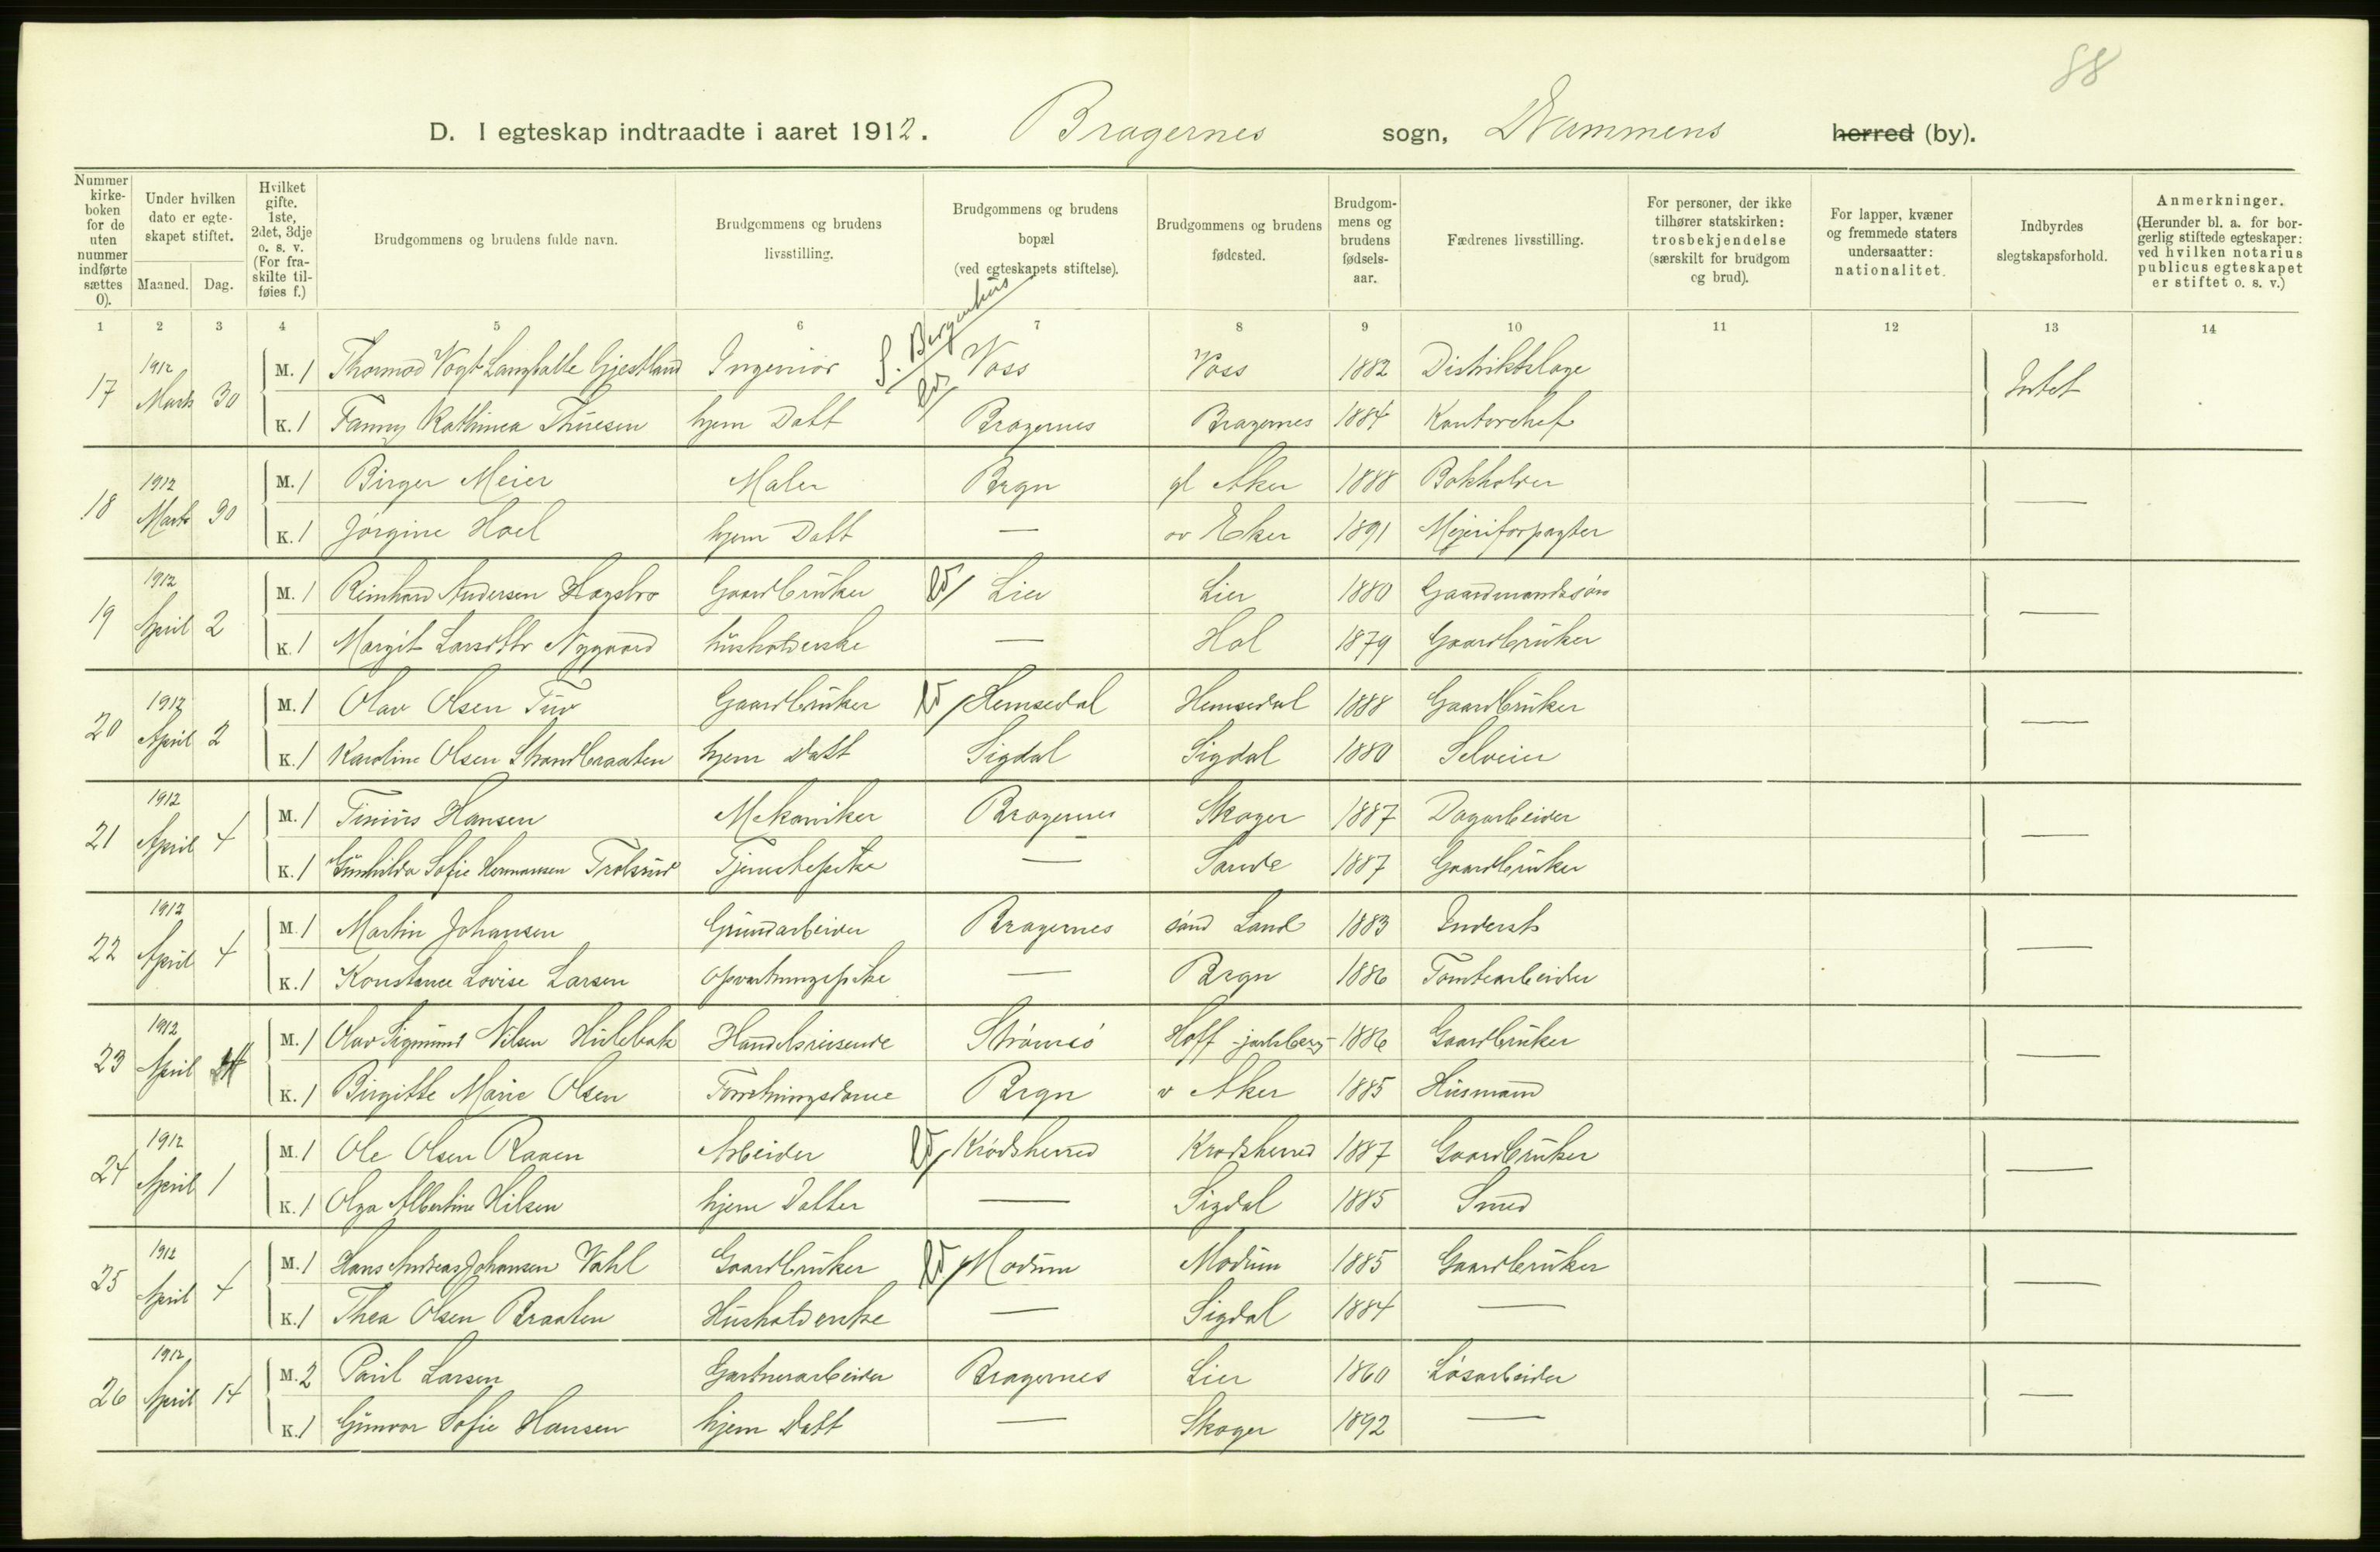 88
D. I egteskap indtraadte i aaret 1912. Bragernes sogn, Drammens herred (by).
Nummer i kirkeboken for de uten nummer indførte sættes 0).
Under hvilken dato er egteskapet stiftet.
Maaned. Dag.
Hvilket gifte. 1ste, 2det, 3dje o. s. v. (For fraskilte tilføies f.)
Brudgommens og brudens fulde navn.
Brudgommens og brudens livsstilling.
Brudgommens og brudens bopæl (ved egteskapets stiftelse).
Brudgommens og brudens fødested.
Brudgommens og brudens fødselsaar.
Fædrenes livsstilling.
For personer, der ikke tilhører statskirken: trosbekjendelse (særskilt for brudgom og brud).
For lapper, kvæner og fremmede staters undersaatter: nationalitet.
Indbyrdes slegtskapsforhold.
Anmerkninger. (Herunder bl. a. for borgerlig stiftede egteskaper: ved hvilken notarius publicus egteskapet er stiftet o. s. v.)
1 2 3 4 5 6 7 8 9 10 11 12 13 14
S. Bergenhus
17 1912 Marts 30 M. 1 Thormod Vogt Gjestland Ingeniør Voss Voss 1882 Distriktslæge Intet
K. 1 Fanny Kathinca Thuesen hjem Datt Bragernes Bragernes 1884 Kontorchef
18 1912 Marts 30 M. 1 Birger Meier Maler Brgn gl Aker 1888 Bokholder —
K. 1 Jørgine Hoel hjem Datt — øv Eker 1891 Mejeriforpagter
19 1912 April 2 M. 1 Reinhard Andersen Gaardbruker Lier Lier 1880 Gaardmandssøn —
K. 1 Margit Larsdtr Nygaard husholderske — Hol 1879 Gaardbruker
20 1912 April 2 M. 1 Olav Olsen Tuv Gaardbruker Hemsedal Hemsedal 1888 Gaardbruker —
K. 1 Karoline Olsen Strandbraaten hjem Datt Sigdal Sigdal 1880 Selveier
21 1912 April 4 M. 1 Tinius Hansen Mekaniker Bragernes Skoger 1887 Dagarbeider —
K. 1 Gunhilda Sofie Hermansen Trolsrud Tjenestepike — Sande 1887 Gaardbruker
22 1912 April 4 M. 1 Martin Johansen Grundarbeider Bragernes sønd Land 1883 Inderst —
K. 1 Konstance Lovise Larsen Opvartningspike — Brgn 1886 Tomtearbeider
23 1912 April M. 1 Olav Sigmund Nilsen Hulebak Handelsreisende Strømsø Hoff jarlsberg 1886 Gaardbruker —
K. 1 Birgitte Marie Olsen Forretningsdame Brgn v Aker 1885 Husmand
24 1912 April 1 M. 1 Ole Olsen Raaen Arbeider Krødsherred Krødsherred 1887 Gaardbruker —
K. 1 Olga Albertine Hilsen hjem Datter — Sigdal 1885 Smed
25 1912 April 4 M. 1 Hans Andreas Johansen Vahl Gaardbruker Modum Modum 1885 Gaardbruker —
K. 1 Thea Olsen Braaten Husholderske — Sigdal 1884 —
26 1912 April 14 M. 2 Paul Larsen Gartnerarbeider Bragernes Lier 1860 Løsarbeider —
K. 1 Gunvor Sofie Hansen hjem Datt — Skoger 1892 —